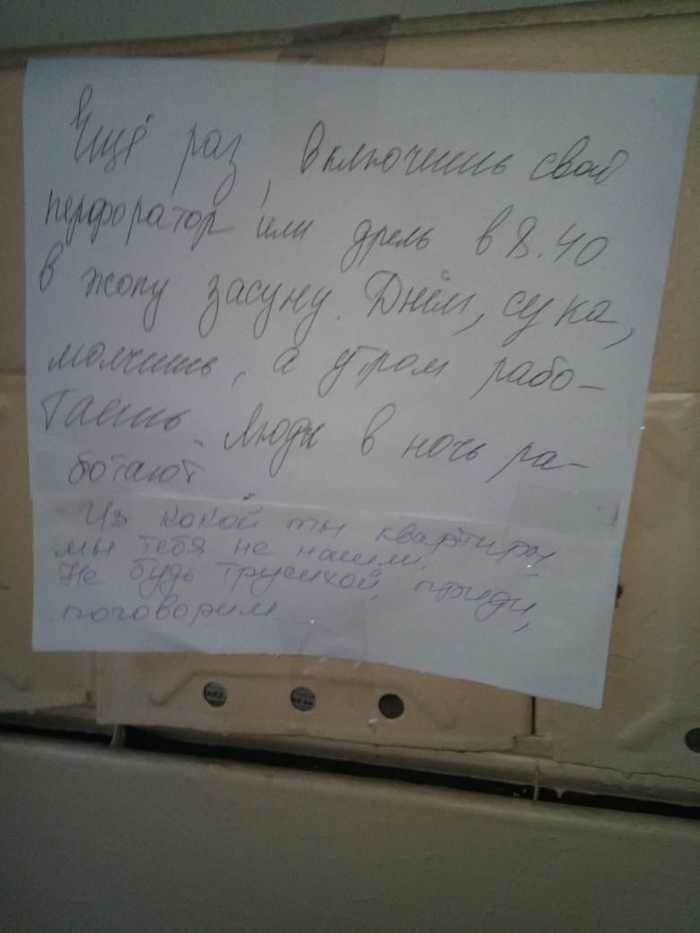 Ещё раз, включишь свой
перфоратор или дрель в 8.40
в жопу засуну. Днём, сука,
молчишь, а утром рабо-
таешь. Люди в ночь ра-
ботают
Из какой ты квартиры
мы тебя не нашли.
Не будь трусихой, приди,
поговорим